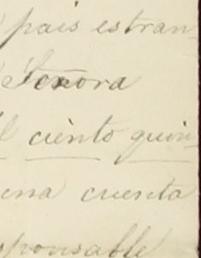 pais estran-
Sonora
l ciento quin-
ena cuenta
sponsable